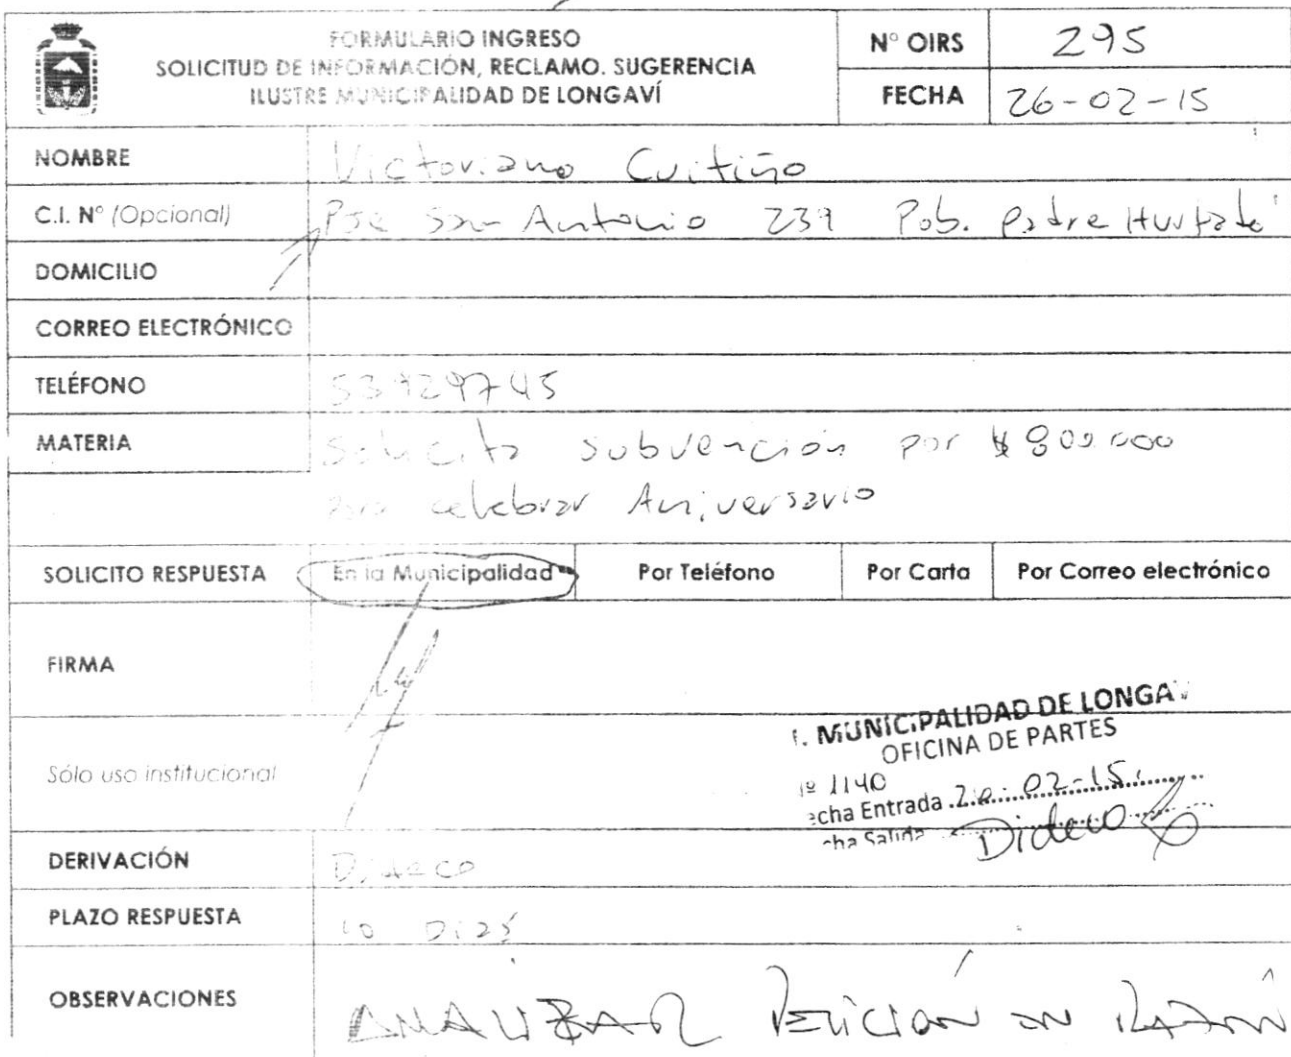 FORMULARIO INGRESO
SOLICITUD DE INFORMACIÓN, RECLAMO. SUGERENCIA
ILUSTRE MUNICIPALIDAD DE LONGAVÍ
N° OIRS 295
FECHA 26-02-15
NOMBRE Victoriano Cuitiño
C.I. N° (Opcional) Pje San Antonio 239 Pob. Padre Hurtado
DOMICILIO
CORREO ELECTRÓNICO
TELÉFONO 53929745
MATERIA Solicita subvención por $ 800.000
para celebrar Aniversario
SOLICITO RESPUESTA En la Municipalidad Por Teléfono Por Carta Por Correo electrónico
FIRMA
I. MUNICIPALIDAD DE LONGAV
OFICINA DE PARTES
Sólo uso institucional
Nº 1140
echa Entrada 26-02-15
cha Salida Dideco
DERIVACIÓN Dideco
PLAZO RESPUESTA 10 Días
OBSERVACIONES ANALIZAR PETICIÓN EN